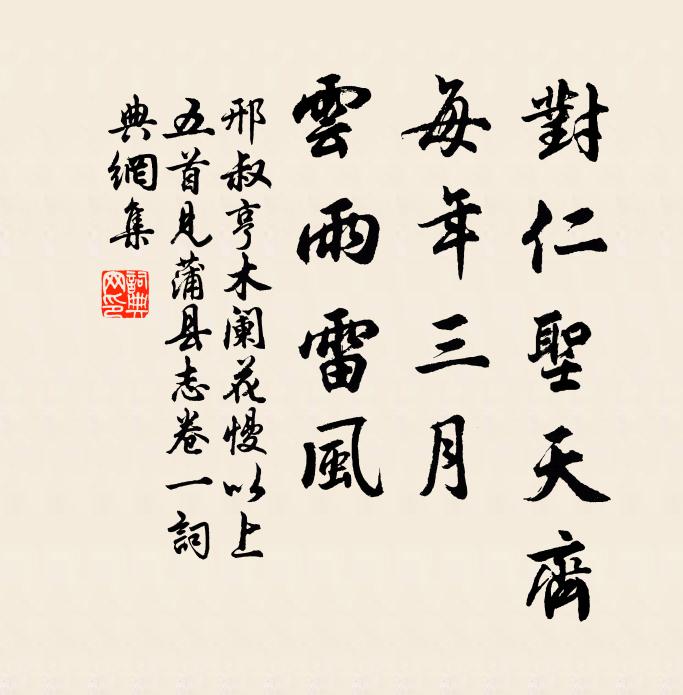 對仁聖天齊
每年三月
雲雨雷風
邢叔亨木阑花慢以上
五首見蒲县志卷一詞
典網集
詞典網印